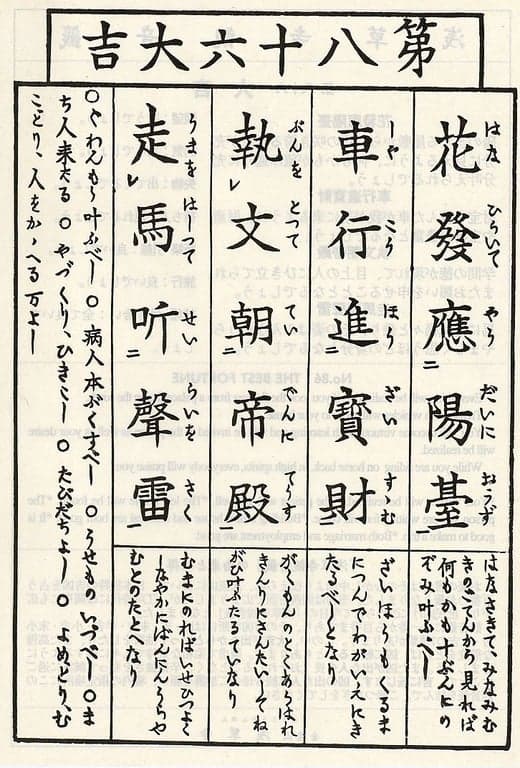 第八十六大吉
花發應二陽臺一
はな ひらいて やう だいに おうず
はなさきて、みなみむ
きのごてんから見れば
何ごとかも十ぶんにの
ぞみ叶ふべし
車行進二寳財一
こう ほう ざい すゝむ
ざいほうもくるま
につんでわがいえにき
たるべしとなり
執レ文朝二帝殿一
ぶんを とつて てい でんに てうす
がくもんのとくあらはれ
きんりにさんだいしてね
がひ叶ふたるていなり
走レ馬听二聲雷一
うまを はしつて せい らいを きく
むまにのればいせひつよく
しなやかにばんにんうらや
むとのたとへなり
○ぐわんもう叶ふべし ○病人本ぷくすべし ○うせものいづべし ○ま
ち人来たる ○やづくり、ひきこし ○たびだちよし ○よめどり、む
ことり、人をかゝへる万よし